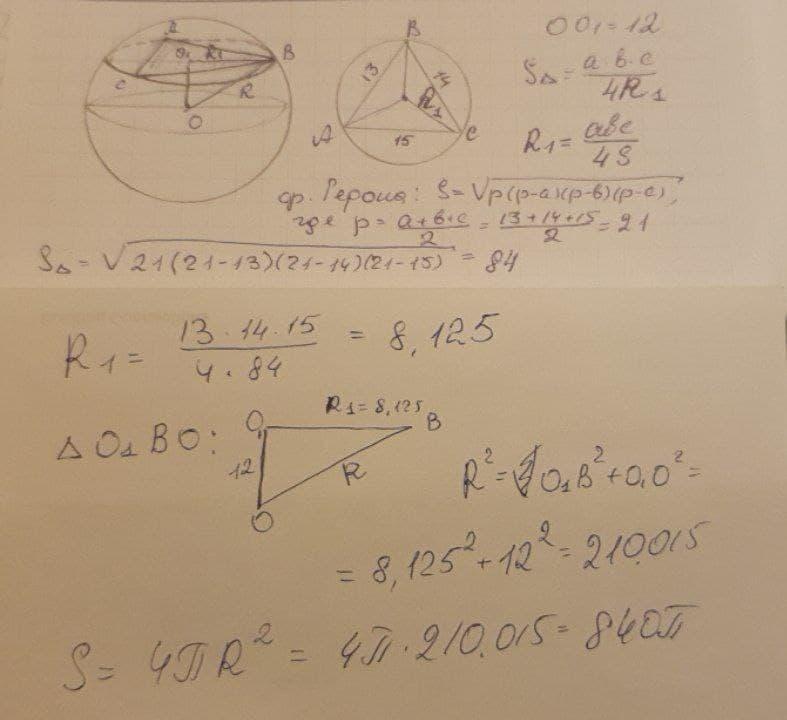 A
O₁ R₁ B
C
R
O
B
13 14
R₁
A 15 C
OO₁ = 12
S△ = a·b·c / 4R₁
R₁ = abc / 4S
ф. Герона: S = √p(p-a)(p-b)(p-c),
где p = a+b+c / 2 = 13+14+15 / 2 = 21
S△ = √21(21-13)(21-14)(21-15) = 84
R₁ = 13·14·15 / 4·84 = 8,125
△O₁BO:
O₁ R₁ = 8,125 B
12 R
O
R² = O₁B² + O₁O² =
= 8,125² + 12² = 210.015
S = 4πR² = 4π·210.015 = 840π